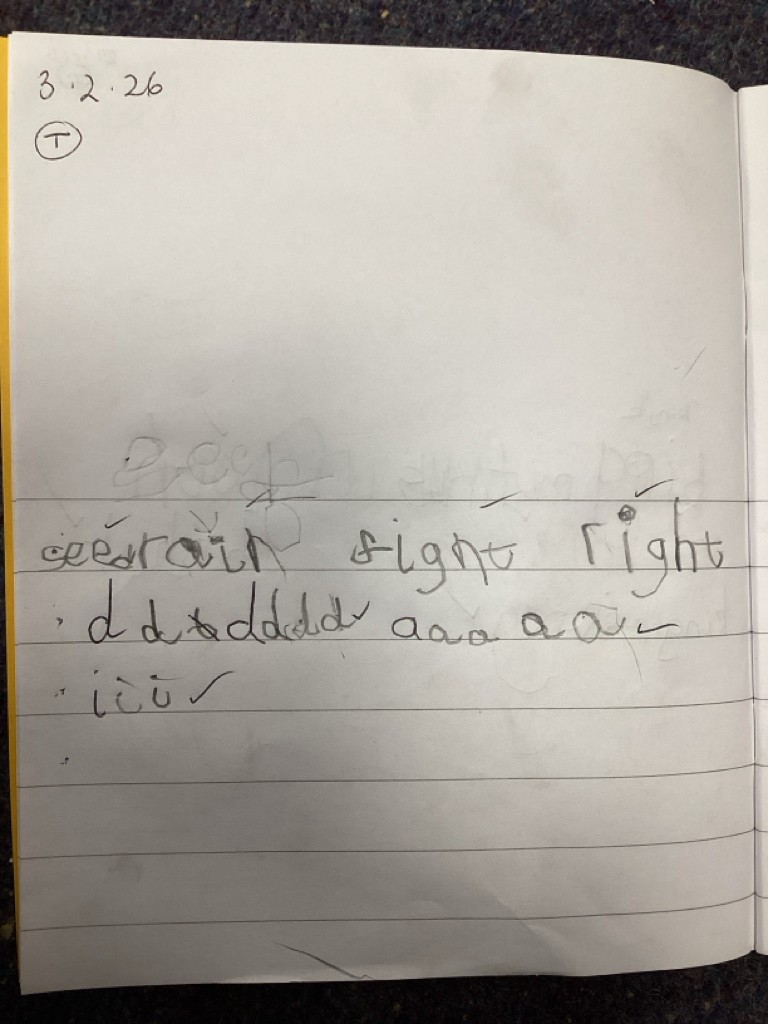 3.2.26
T
seed rain sight right
d d d d d d d a a a a a
i i i